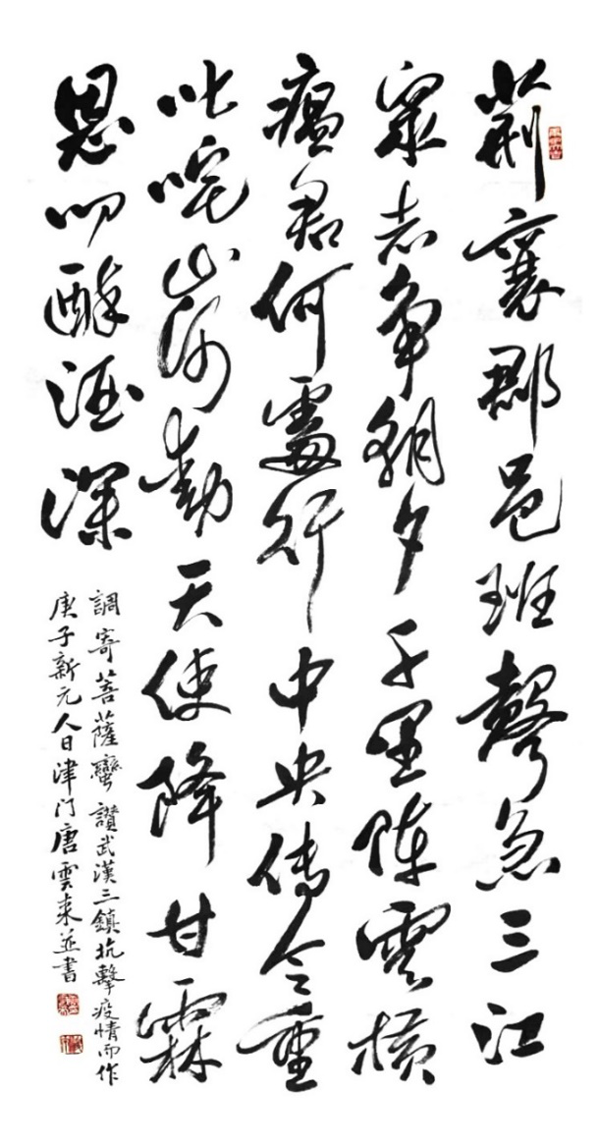 荊襄郡邑班聲急三江
眾志爭朝夕千里陣雲橫
瘟君何處行中央傳令重
叱咤山河動天使降甘霖
恩醉酒深
調寄菩薩蠻 讚武漢三鎮抗擊疫情而作
庚子新元人日津门唐雲来並書